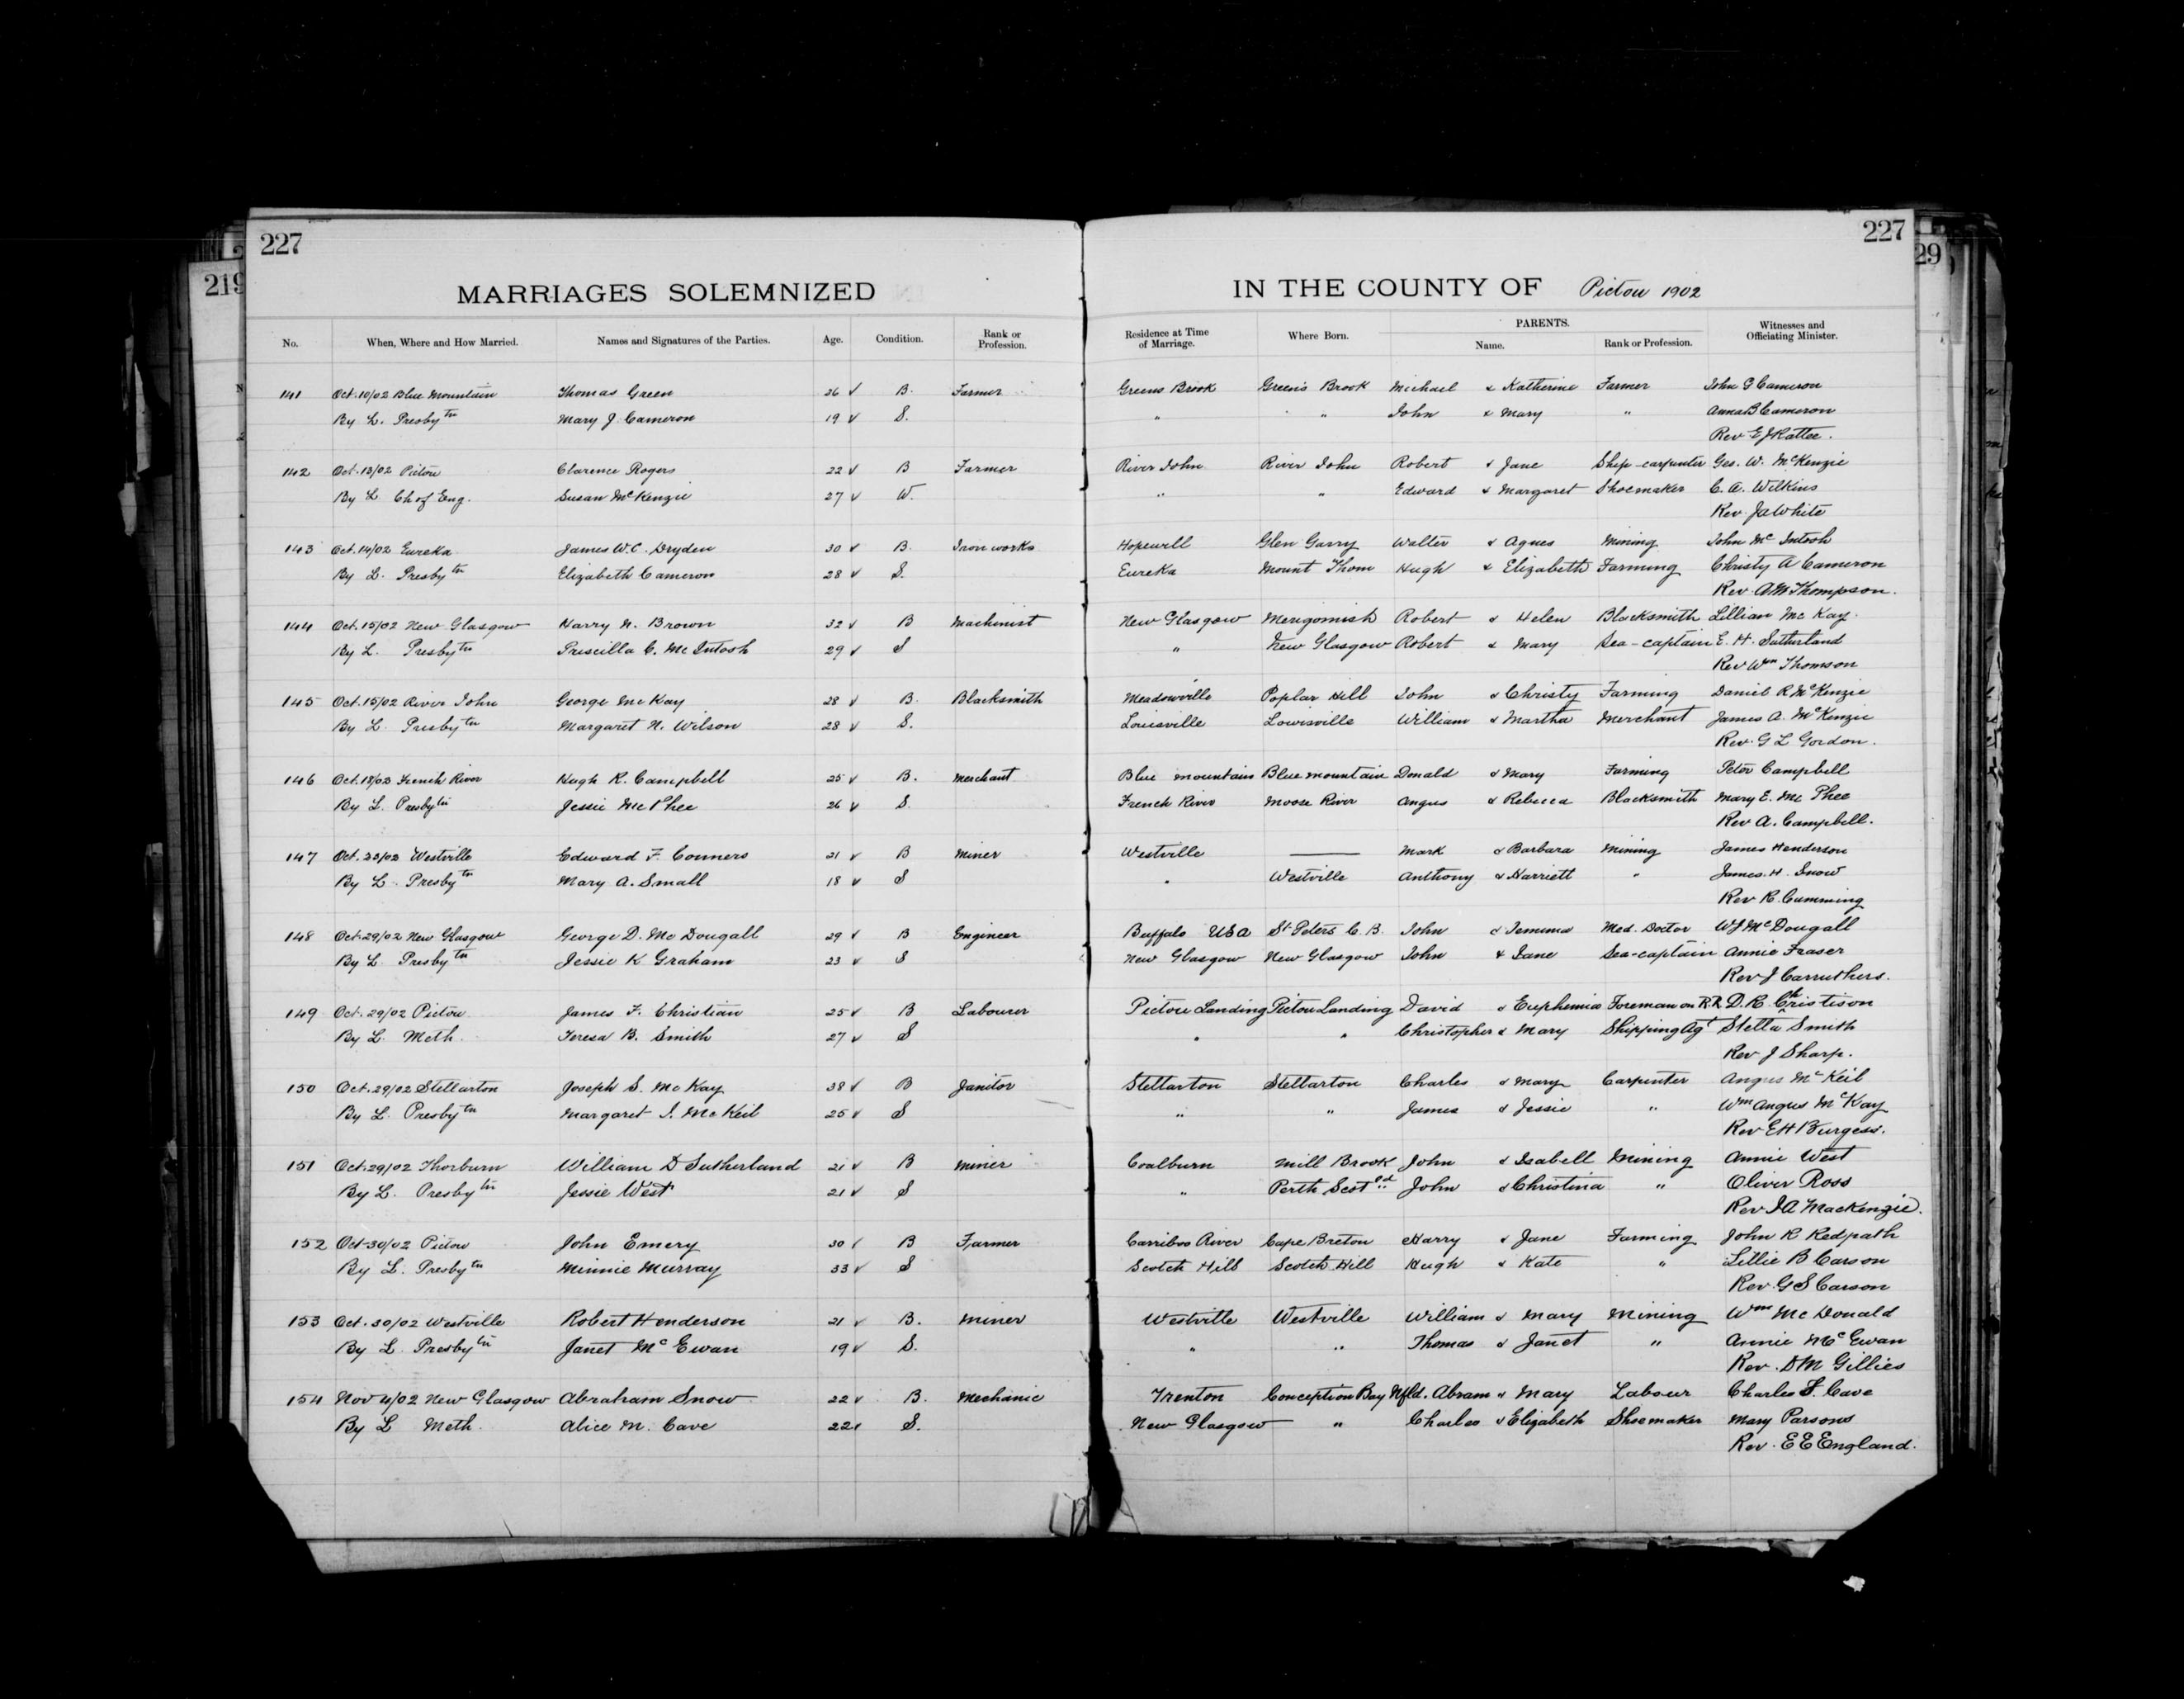 227
227
219
29
MARRIAGES SOLEMNIZED IN THE COUNTY OF Pictou 1902
No. When, Where and How Married. Names and Signatures of the Parties. Age. Condition. Rank or Profession. Residence at Time of Marriage. Where Born. PARENTS. Name. Rank or Profession. Witnesses and Officiating Minister.
141 Oct. 10/02 Blue Mountain Thomas Green 26 √ B. Farmer Greens Brook Green's Brook Michael & Katherine Farmer John G Cameron
By L. Presbytn Mary J. Cameron 19 √ S. " " John & Mary " Anna B Cameron
Rev E J Rattee.
142 Oct. 13/02 Pictou Clarence Rogers 22 √ B Farmer River John River John Robert & Jane Ship-carpenter Geo. W. McKenzie
By L Ch of Eng. Susan McKenzie 27 √ W. " " Edward & Margaret Shoemaker C. A. Wilkins
Rev. J A White
143 Oct. 14/02 Eureka James W. C. Dryden 30 √ B. Iron works Hopewell Glen Garry Walter & Agnes Mining John McIntosh
By L. Presbytn Elizabeth Cameron 28 √ S. Eureka Mount Thom Hugh & Elizabeth Farming Christy A Cameron
Rev. A M Thompson.
144 Oct. 15/02 New Glasgow Harry N. Brown 32 √ B Machinist New Glasgow Merigomish Robert & Helen Blacksmith Lillian McKay.
By L. Presbytn Priscilla C. McIntosh 29 √ S " New Glasgow Robert & Mary Sea-captain E. H. Sutherland
Rev Wm Thomson
145 Oct. 15/02 River John George McKay 28 √ B. Blacksmith Meadowville Poplar Hill John & Christy Farming Daniel R McKenzie
By L. Presbytn Margaret N. Wilson 28 √ S. Louisville Louisville William & Martha Merchant James A. McKenzie
Rev. G L Gordon.
146 Oct. 18/02 French River Hugh R. Campbell 25 √ B. Merchant Blue Mountain Blue Mountain Donald & Mary Farming Peter Campbell
By L. Presbytn Jessie McPhee 26 √ S. French River Moose River Angus & Rebecca Blacksmith Mary E. McPhee
Rev A. Campbell.
147 Oct. 22/02 Westville Edward F. Conners 21 √ B Miner Westville — Mark & Barbara Mining James Henderson
By L. Presbytn Mary A. Small 18 √ S " Westville Anthony & Harriett " James. H. Snow
Rev R. Cumming
148 Oct. 29/02 New Glasgow George D. McDougall 29 √ B Engineer Buffalo USA St Peters C. B. John & Jemima Med. Doctor W J McDougall
By L Presbytn Jessie K Graham 23 √ S New Glasgow New Glasgow John & Jane Sea-captain Annie Fraser
Rev J Carruthers.
149 Oct. 29/02 Pictou James F. Christian 25 √ B Labourer Pictou Landing Pictou Landing David & Euphemia Foreman on R.R D. R. Christison
By L. Meth. Teresa B. Smith 27 √ S " " Christopher & Mary Shipping Agt Stella Smith
Rev J Sharp.
150 Oct. 29/02 Stellarton Joseph S. McKay 38 √ B Janitor Stellarton Stellarton Charles & Mary Carpenter Angus McKeil
By L. Presbytn Margaret I. McKeil 25 √ S " " James & Jessie " Wm Angus McKay
Rev E H Burgess.
151 Oct. 29/02 Thorburn William D Sutherland 21 √ B Miner Coalburn Mill Brook John & Isabell Mining Annie West
By L. Presbytn Jessie West 21 √ S " Perth Scotld John & Christina " Oliver Ross
Rev. J A MacKenzie.
152 Oct-30/02 Pictou John Emery 30 √ B Farmer Carriboo River Cape Breton Harry & Jane Farming John R Redpath
By L. Presbytn Minnie Murray 33 √ S Scotch Hill Scotch Hill Hugh & Kate " Lillie B Carson
Rev. G S Carson
153 Oct. 30/02 Westville Robert Henderson 21 √ B. Miner Westville Westville William & Mary Mining Wm McDonald
By L. Presbytn Janet McEwan 19 √ S. " " Thomas & Janet " Annie McEwan
Rev. D M Gillies
154 Nov 4/02 New Glasgow Abraham Snow 22 √ B. Mechanic Trenton Conception Bay Nfld. Abram & Mary Labour Charles F. Cave
By L Meth. Alice M. Cave 22 √ S. New Glasgow " Charles & Elizabeth Shoemaker Mary Parsons
Rev. E E England.